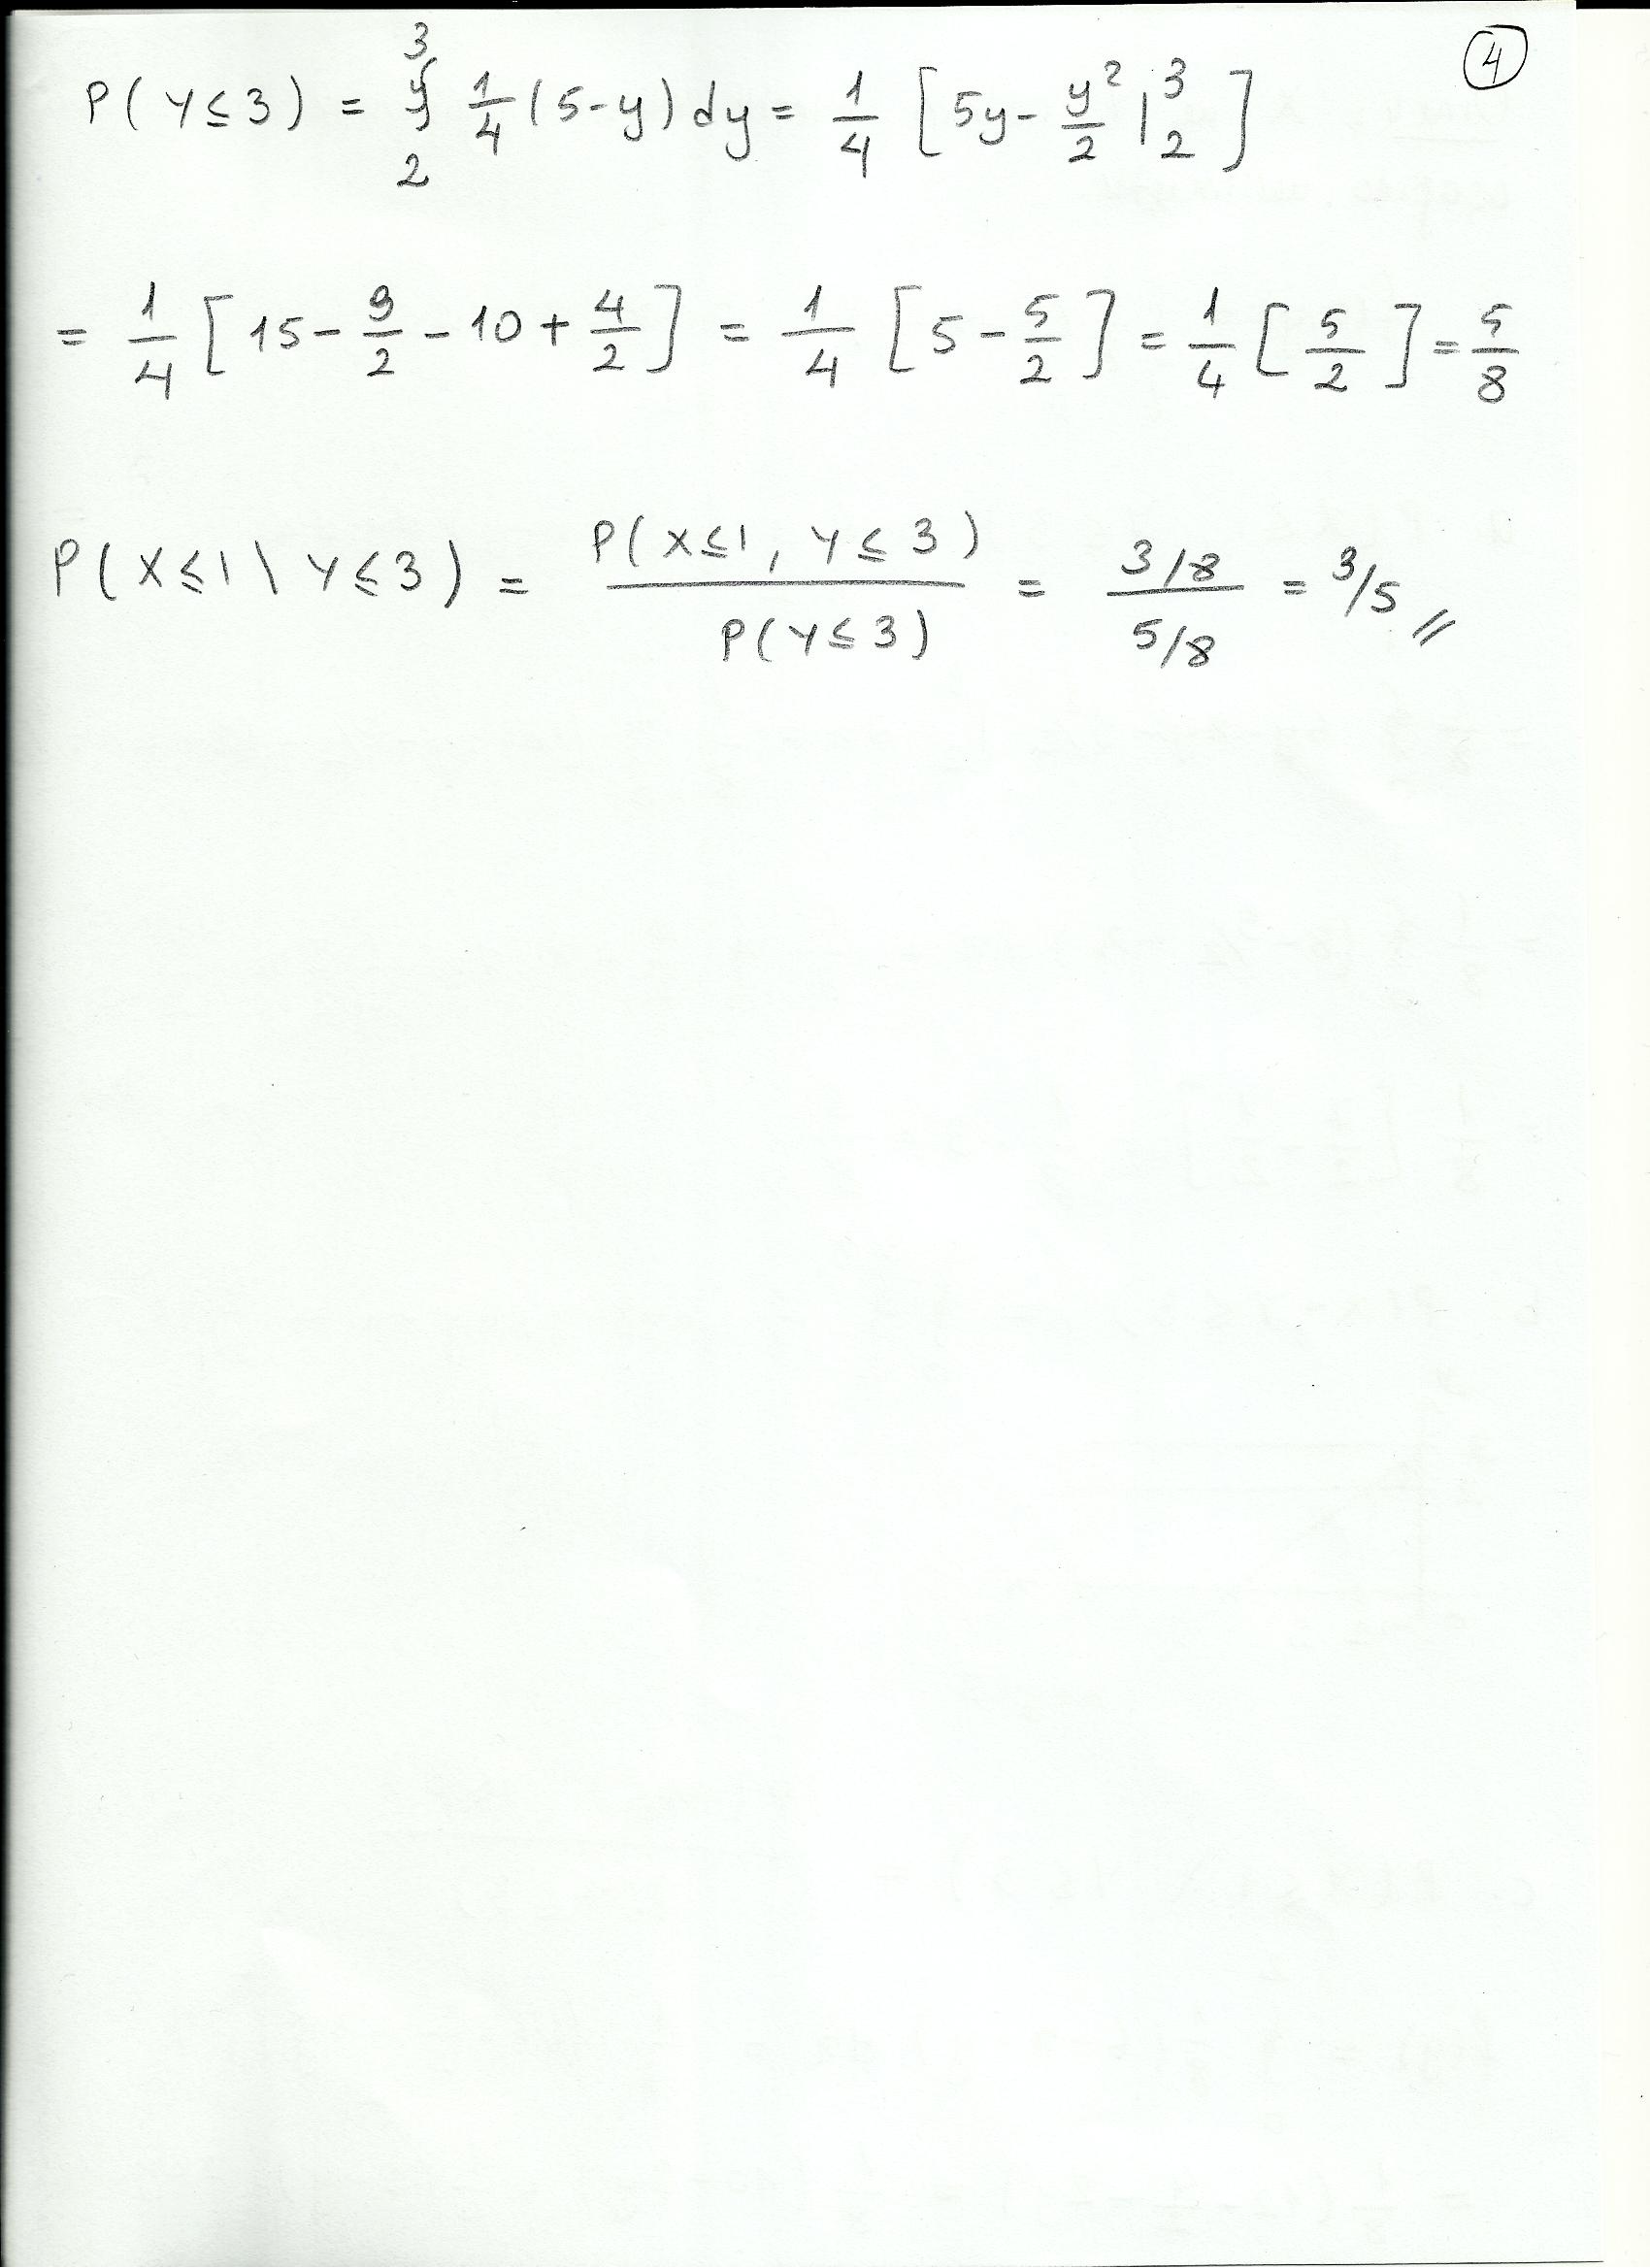 ④
P(Y≤3) = ∫₂³ 1/4 (5-y) dy = 1/4 [5y - y²/2 |₂³]
= 1/4 [15 - 9/2 - 10 + 4/2] = 1/4 [5 - 5/2] = 1/4 [5/2] = 5/8
P(X≤1 \ Y≤3) = P(X≤1, Y≤3) / P(Y≤3) = 3/8 / 5/8 = 3/5 //